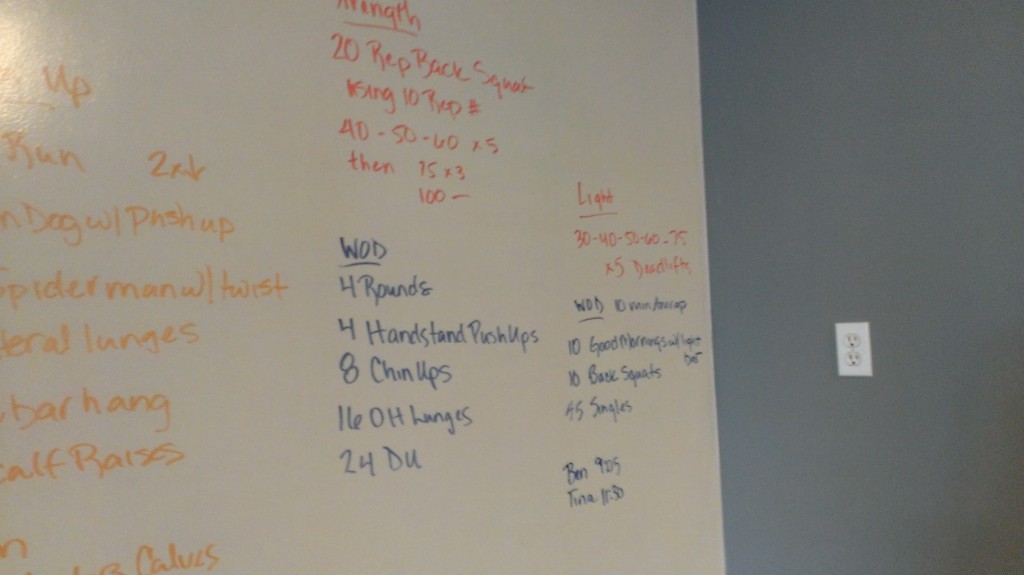 Up
Run 2x
Dog w/ Pushup
Spiderman w/ twist
lateral lunges
bar hang
Calf Raises
Calves
Strength
20 Rep Back Squat
Using 10 Rep #
40 - 50 - 60 x 5
then 75 x 3
100 -
WOD
4 Rounds
4 Handstand PushUps
8 ChinUps
16 OH Lunges
24 DU
Light
30-40-50-60-75
x5 Deadlifts
WOD 10 min/amrap
10 GoodMornings w/ light
bar
10 Back Squats
45 Singles
Ben 9:05
Tina 11:30